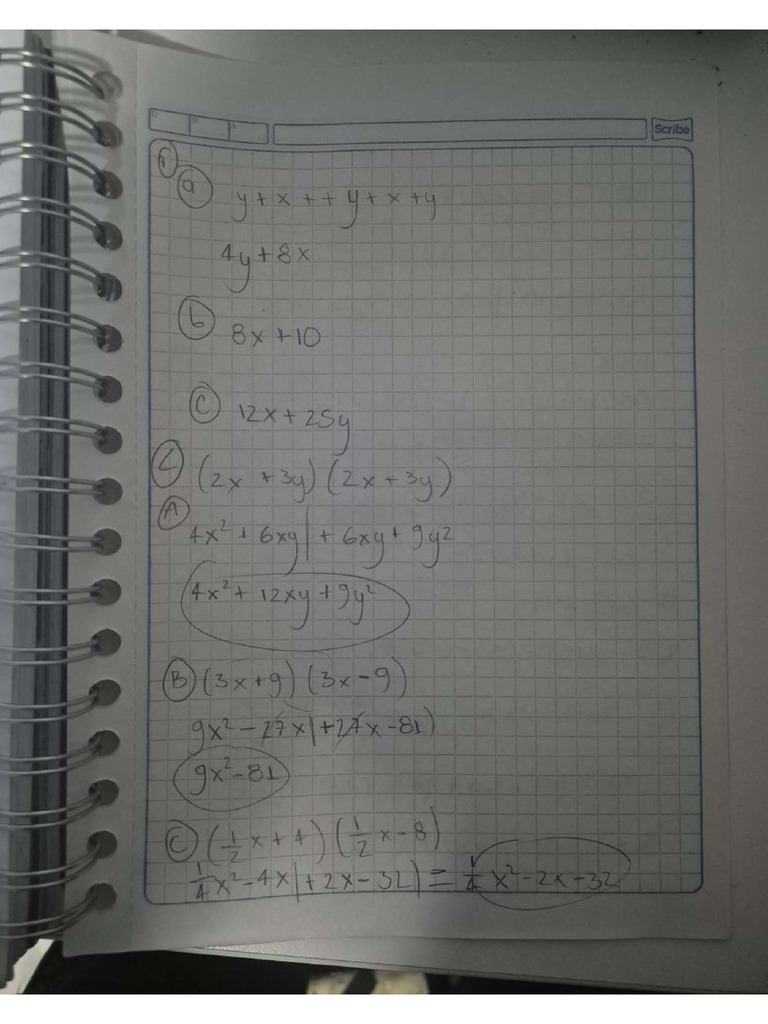 Scribe
1
a y + x + + y + x + y
4y + 8x
b 8x + 10
c 12x + 25y
4 (2x + 3y) (2x + 3y)
A 4x² + 6xy | + 6xy + 9y²
4x² + 12xy + 9y²
B (3x + 9) (3x - 9)
9x² - 27x | + 27x - 81)
9x² - 81
C (1/2 x + 4) (1/2 x - 8)
1/4 x² - 4x | + 2x - 32) = 1/4 x² - 2x - 32